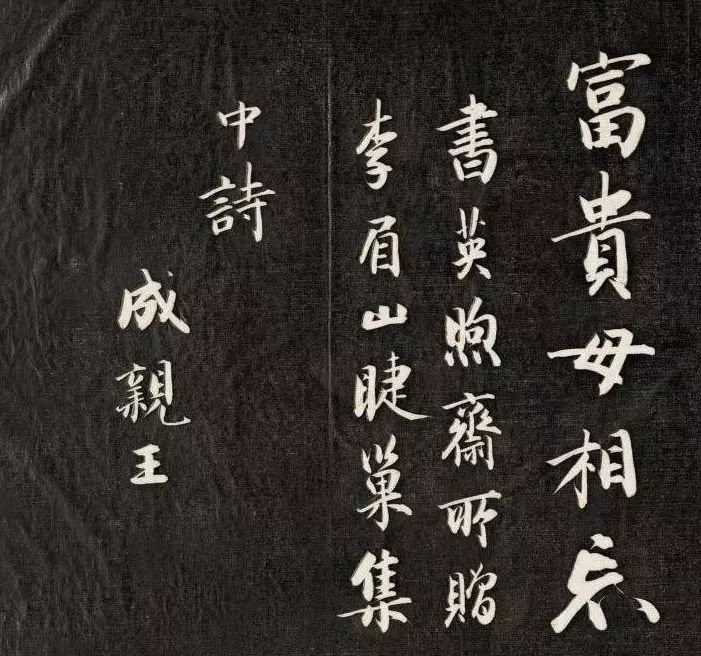 富貴毋相忘
書英煦齋所贈
李眉山睫巢集
中詩
成親王